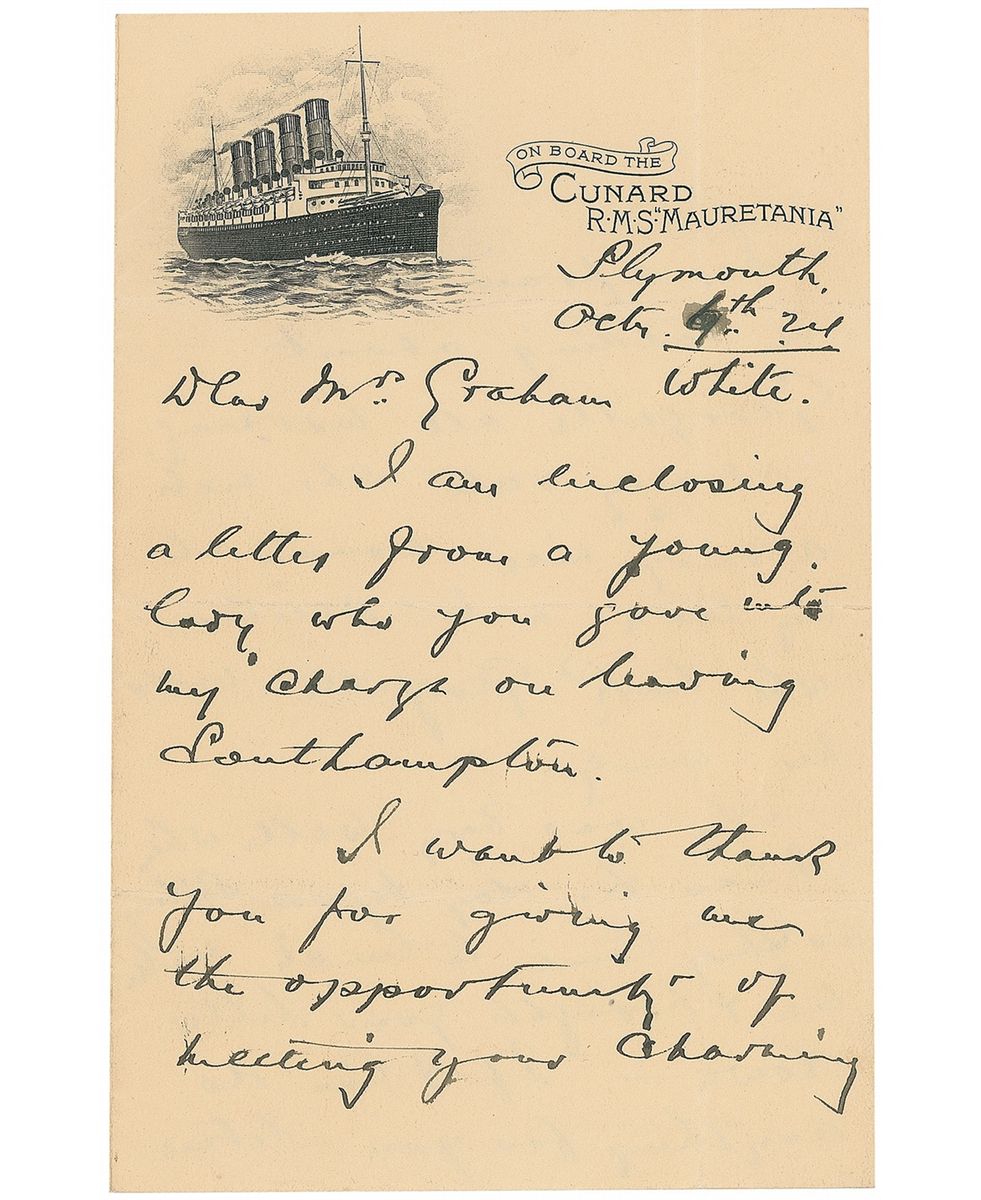 ON BOARD THE
CUNARD
R.M.S "MAURETANIA"
Plymouth.
Octr. 9th 24
Dear Mrs. Graham White.
I am enclosing
a letter from a young
lady who you gave into
my charge on leaving
Southampton.
I want to thank
you for giving me
the opportunity of
meeting your charming